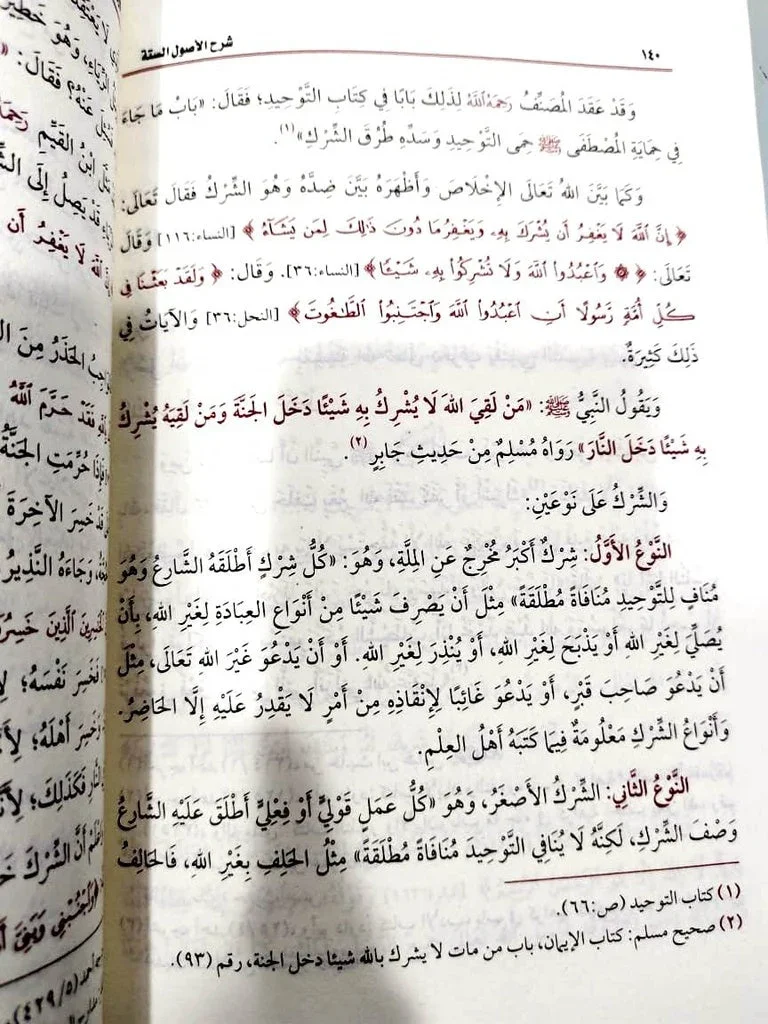 ١٤٠
شرح الأصول الستة
وَقَدْ عَقَدَ المُصَنِّفُ رَحِمَهُ اللَّهُ لِذَلِكَ بَابًا فِي كِتَابِ التَّوْحِيدِ؛ فَقَالَ: «بَابُ مَا جَاءَ
فِي حِمَايَةِ المُصْطَفَى ﷺ حِمَى التَّوْحِيدِ وَسَدِّهِ طُرُقَ الشِّرْكِ»(١).
وَكَمَا بَيَّنَ اللهُ تَعَالَى الإِخْلَاصَ وَأَظْهَرَهُ بَيَّنَ ضِدَّهُ وَهُوَ الشِّرْكُ فَقَالَ تَعَالَى:
﴿إِنَّ ٱللَّهَ لَا يَغْفِرُ أَن يُشْرَكَ بِهِۦ وَيَغْفِرُ مَا دُونَ ذَٰلِكَ لِمَن يَشَآءُ﴾ [النساء:١١٦] وَقَالَ
تَعَالَى: ﴿۞ وَٱعْبُدُوا۟ ٱللَّهَ وَلَا تُشْرِكُوا۟ بِهِۦ شَيْـًٔا﴾ [النساء:٣٦]. وَقَالَ: ﴿وَلَقَدْ بَعَثْنَا فِى
كُلِّ أُمَّةٍ رَّسُولًا أَنِ ٱعْبُدُوا۟ ٱللَّهَ وَٱجْتَنِبُوا۟ ٱلطَّٰغُوتَ﴾ [النحل:٣٦] وَالآيَاتُ فِي
ذَلِكَ كَثِيرَةٌ.
وَيَقُولُ النَّبِيُّ ﷺ: «مَنْ لَقِيَ اللهَ لَا يُشْرِكُ بِهِ شَيْئًا دَخَلَ الجَنَّةَ وَمَنْ لَقِيَهُ يُشْرِكُ
بِهِ شَيْئًا دَخَلَ النَّارَ» رَوَاهُ مُسْلِمٌ مِنْ حَدِيثِ جَابِرٍ(٢).
وَالشِّرْكُ عَلَى نَوْعَيْنِ:
النَّوْعُ الأَوَّلُ: شِرْكٌ أَكْبَرُ مُخْرِجٌ عَنِ المِلَّةِ، وَهُوَ: «كُلُّ شِرْكٍ أَطْلَقَهُ الشَّارِعُ وَهُوَ
مُنَافٍ لِلتَّوْحِيدِ مُنَافَاةً مُطْلَقَةً» مِثْلَ أَنْ يَصْرِفَ شَيْئًا مِنْ أَنْوَاعِ العِبَادَةِ لِغَيْرِ اللهِ، بِأَنْ
يُصَلِّيَ لِغَيْرِ اللهِ أَوْ يَذْبَحَ لِغَيْرِ اللهِ، أَوْ يُنْذِرَ لِغَيْرِ اللهِ. أَوْ أَنْ يَدْعُوَ غَيْرَ اللهِ تَعَالَى، مِثْلَ
أَنْ يَدْعُوَ صَاحِبَ قَبْرٍ، أَوْ يَدْعُوَ غَائِبًا لِإِنْقَاذِهِ مِنْ أَمْرٍ لَا يَقْدِرُ عَلَيْهِ إِلَّا الحَاضِرُ.
وَأَنْوَاعُ الشِّرْكِ مَعْلُومَةٌ فِيمَا كَتَبَهُ أَهْلُ العِلْمِ.
النَّوْعُ الثَّانِي: الشِّرْكُ الأَصْغَرُ، وَهُوَ «كُلُّ عَمَلٍ قَوْلِيٍّ أَوْ فِعْلِيٍّ أَطْلَقَ عَلَيْهِ الشَّارِعُ
وَصْفَ الشِّرْكِ، لَكِنَّهُ لَا يُنَافِي التَّوْحِيدَ مُنَافَاةً مُطْلَقَةً» مِثْلُ الحَلِفِ بِغَيْرِ اللهِ، فَالحَالِفُ
(١) كتاب التوحيد (ص:٦٦).
(٢) صحيح مسلم: كتاب الإيمان، باب من مات لا يشرك بالله شيئا دخل الجنة، رقم (٩٣).